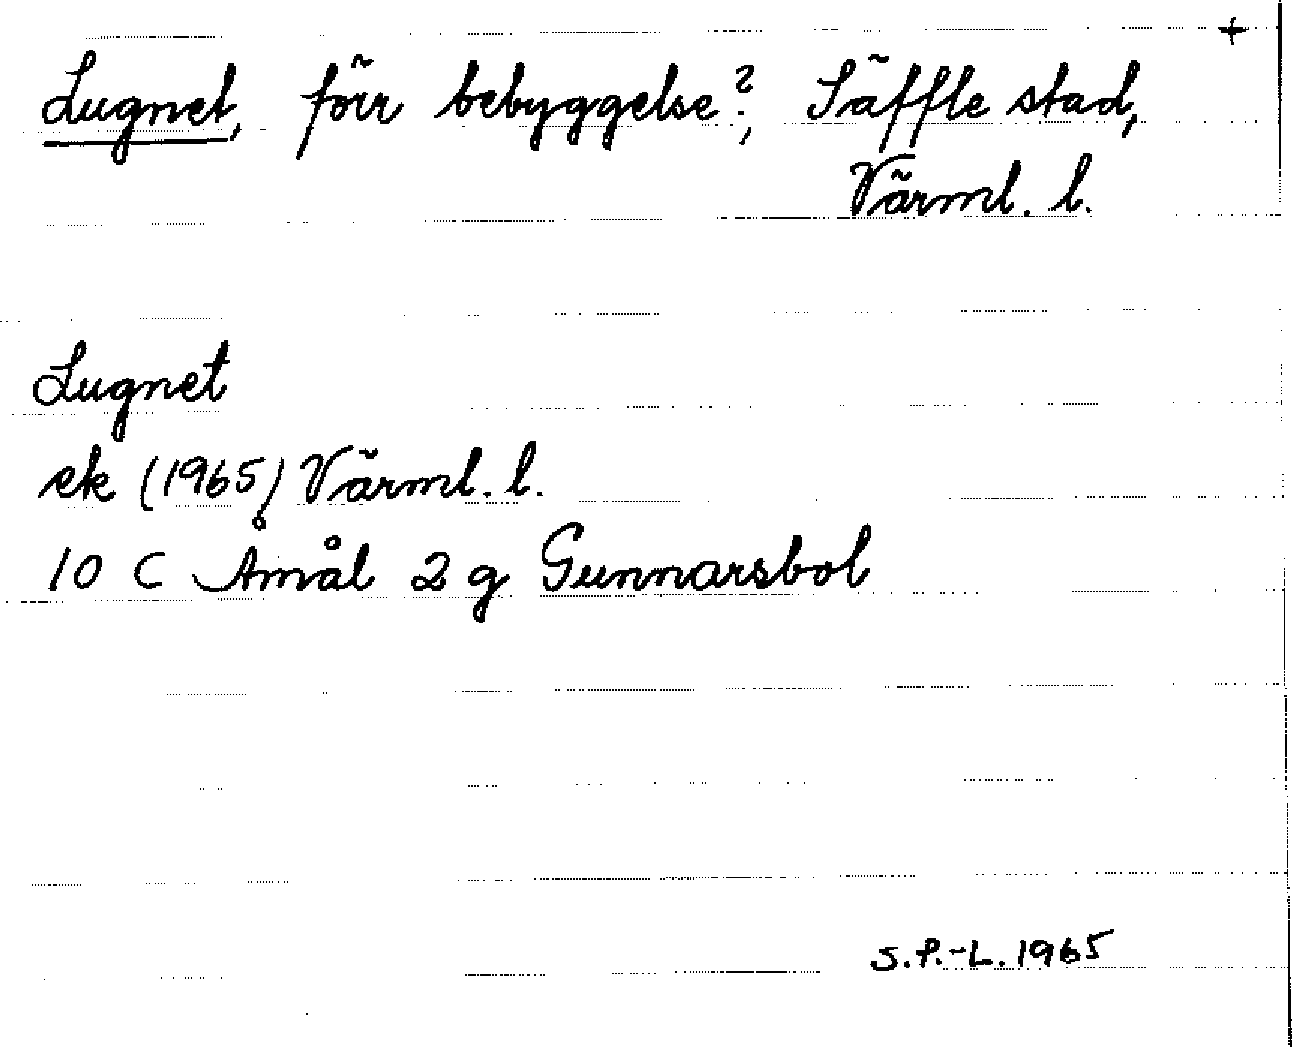 +
Lugnet, förr bebyggelse?, Säffle stad,
Värml. l.
Lugnet
ek (1965) Värml. l.
10 C Åmål 2 g Gunnarsbol
S.P.-L. 1965